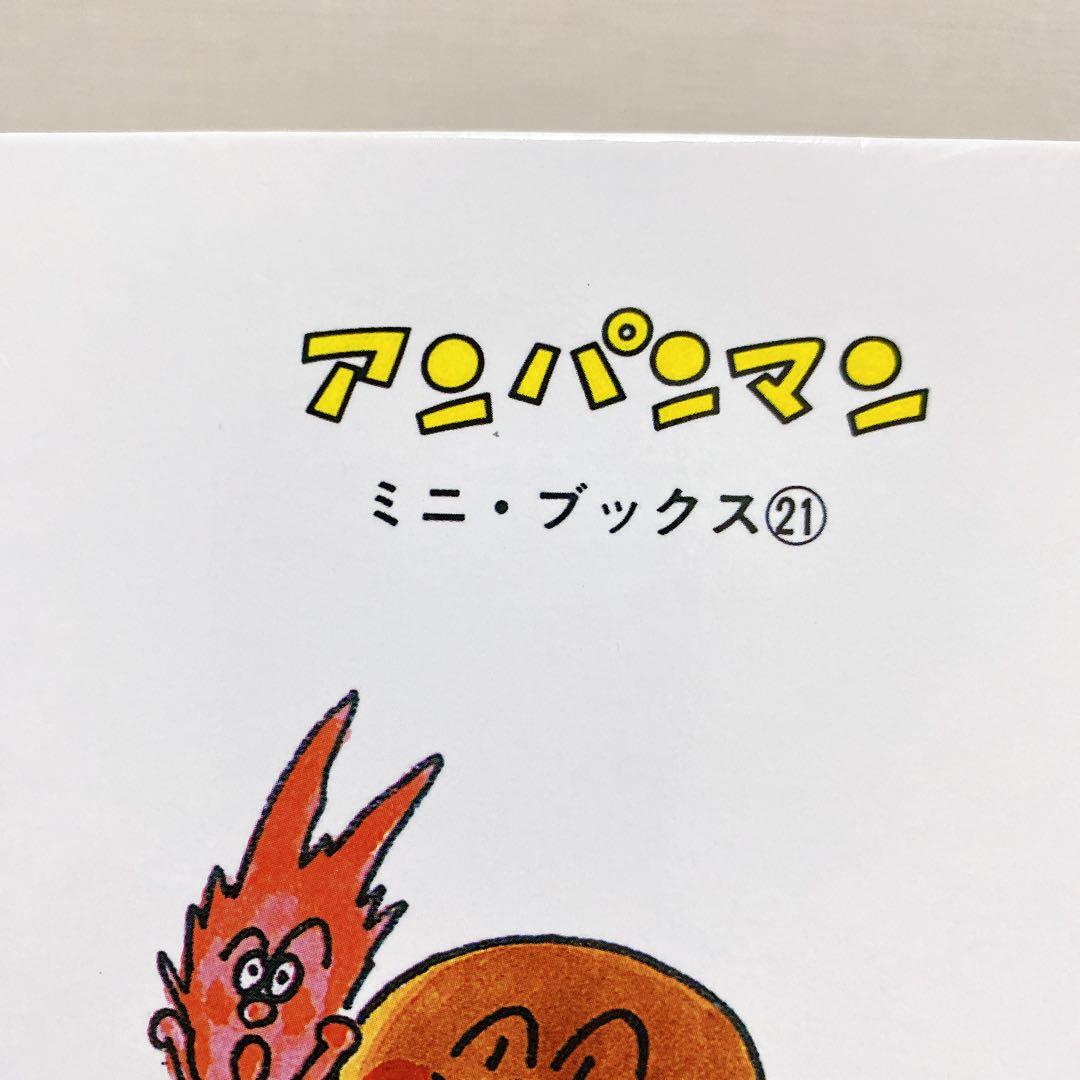 アンパンマン
ミニ・ブックス㉑